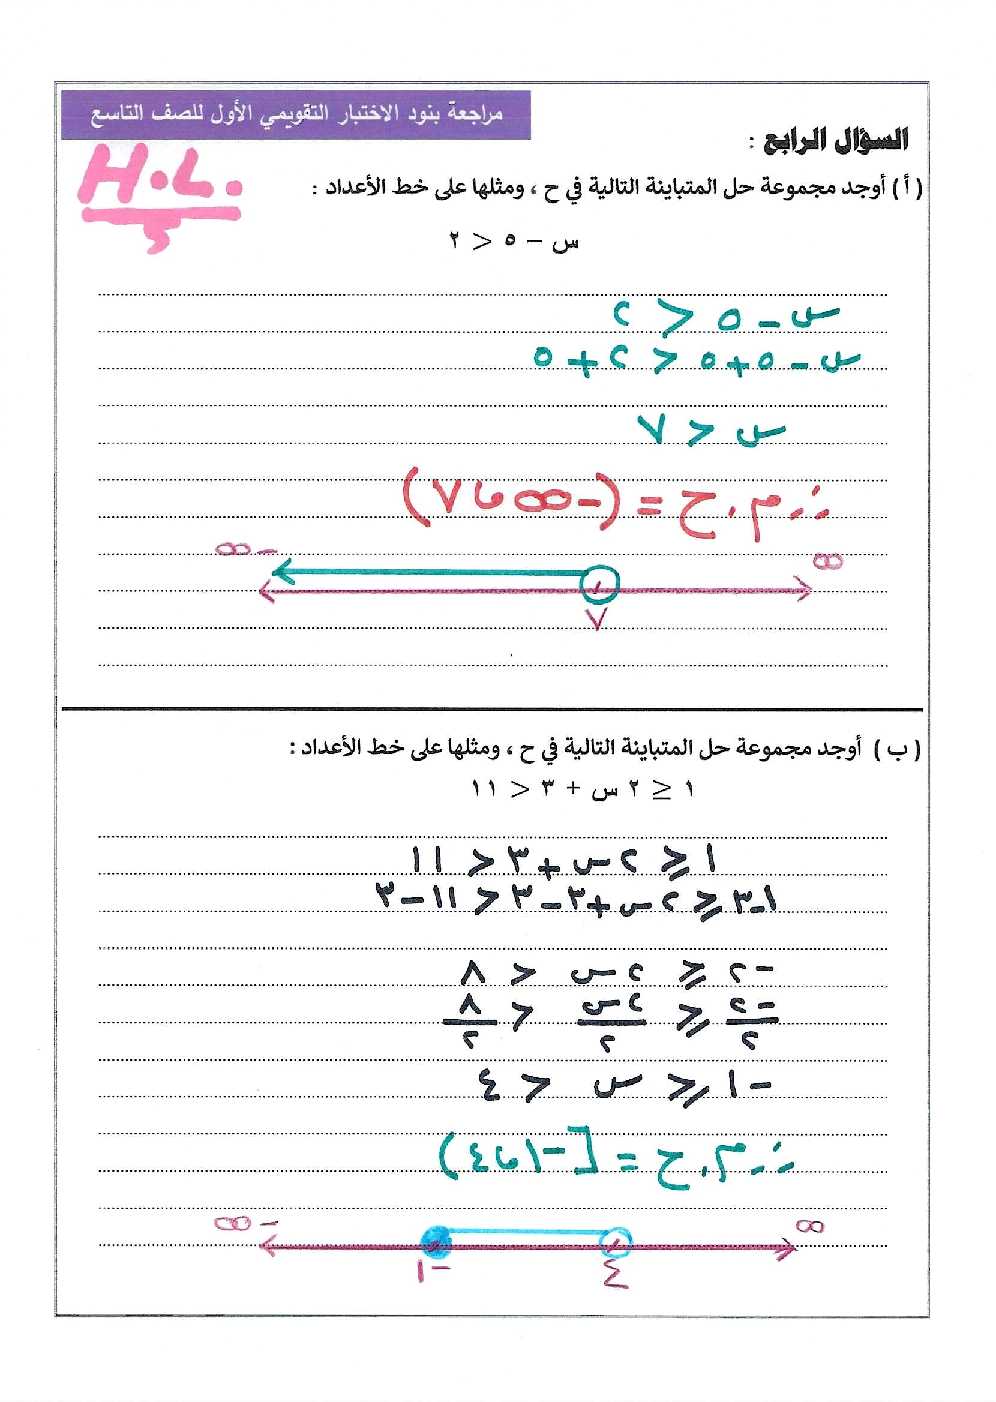 مراجعة بنود الاختبار التقويمي الأول للصف التاسع
H.L.
السؤال الرابع :
( أ ) أوجد مجموعة حل المتباينة التالية في ح ، ومثلها على خط الأعداد :
س − ٥ < ٢
س − ٥ < ٢
س − ٥ + ٥ < ٢ + ٥
س < ٧
∴ م.ح = (−∞ ، ٧)
−∞ ∞
٧
( ب ) أوجد مجموعة حل المتباينة التالية في ح ، ومثلها على خط الأعداد :
١ ≥ ٢ س + ٣ > ١١
١ ≥ ٢ س + ٣ > ١١
١ − ٣ ≥ ٢ س + ٣ − ٣ > ١١ − ٣
−٢ ≥ ٢ س > ٨
−٢/٢ ≥ ٢س/٢ > ٨/٢
−١ ≥ س > ٤
∴ م.ح = [−١ ، ٤)
−∞ ∞
−١ ٤